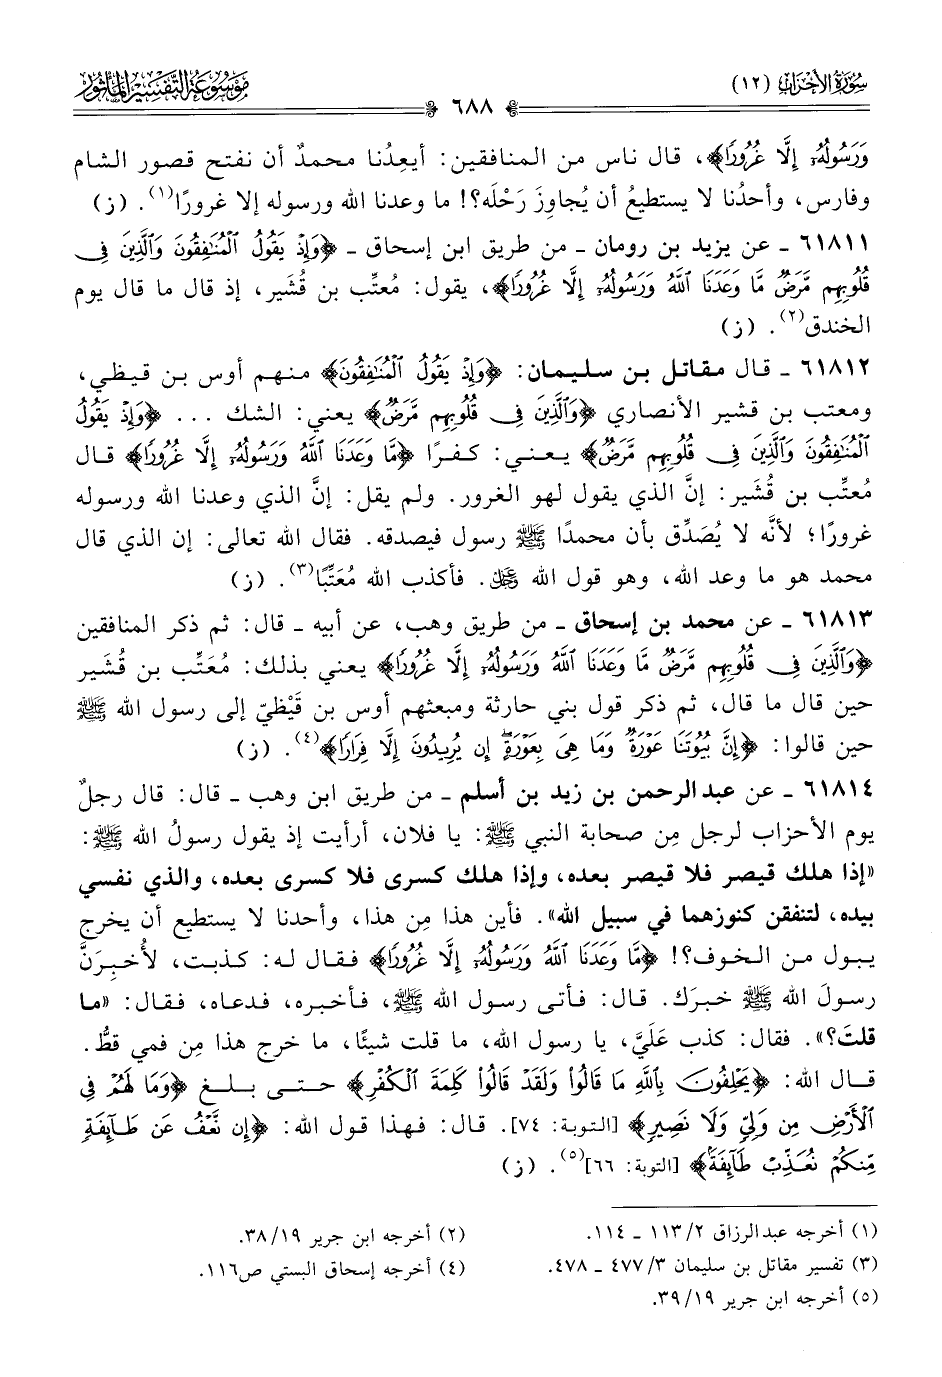 سُورَةُ الأَحْزَابِ (١٢)
٦٨٨
مَوْسُوعَةُ التَّفْسِيرِ المَأْثُورِ
وَرَسُولُهُۥٓ إِلَّا غُرُورًا﴾، قال ناس من المنافقين: أيعِدُنا محمدٌ أن نفتح قصور الشام
وفارس، وأحدُنا لا يستطيعُ أن يُجاوِزَ رَحْلَه؟! ما وعدنا الله ورسوله إلا غرورًا(١). (ز)
٦١٨١١ ـ عن يزيد بن رومان ـ من طريق ابن إسحاق ـ ﴿وَإِذْ يَقُولُ ٱلْمُنَٰفِقُونَ وَٱلَّذِينَ فِى
قُلُوبِهِم مَّرَضٌ مَّا وَعَدَنَا ٱللَّهُ وَرَسُولُهُۥٓ إِلَّا غُرُورًا﴾، يقول: مُعتِّب بن قُشَير، إذ قال ما قال يوم
الخندق(٢). (ز)
٦١٨١٢ ـ قال مقاتل بن سليمان: ﴿وَإِذْ يَقُولُ ٱلْمُنَٰفِقُونَ﴾ منهم أوس بن قيظي،
ومعتب بن قشير الأنصاري ﴿وَٱلَّذِينَ فِى قُلُوبِهِم مَّرَضٌ﴾ يعني: الشك ... ﴿وَإِذْ يَقُولُ
ٱلْمُنَٰفِقُونَ وَٱلَّذِينَ فِى قُلُوبِهِم مَّرَضٌ﴾ يعني: كفرًا ﴿مَّا وَعَدَنَا ٱللَّهُ وَرَسُولُهُۥٓ إِلَّا غُرُورًا﴾ قال
مُعتِّب بن قُشَير: إنَّ الذي يقول لهو الغرور. ولم يقل: إنَّ الذي وعدنا الله ورسوله
غرورًا؛ لأنَّه لا يُصَدِّق بأن محمدًا ﷺ رسول فيصدقه. فقال الله تعالى: إن الذي قال
محمد هو ما وعد الله، وهو قول الله ﷿. فأكذب الله مُعَتِّبًا(٣). (ز)
٦١٨١٣ ـ عن محمد بن إسحاق ـ من طريق وهب، عن أبيه ـ قال: ثم ذكر المنافقين
﴿وَٱلَّذِينَ فِى قُلُوبِهِم مَّرَضٌ مَّا وَعَدَنَا ٱللَّهُ وَرَسُولُهُۥٓ إِلَّا غُرُورًا﴾ يعني بذلك: مُعَتِّب بن قُشَير
حين قال ما قال، ثم ذكر قول بني حارثة ومبعثهم أوس بن قَيْظيّ إلى رسول الله ﷺ
حين قالوا: ﴿إِنَّ بُيُوتَنَا عَوْرَةٌ وَمَا هِىَ بِعَوْرَةٍ إِن يُرِيدُونَ إِلَّا فِرَارًا﴾(٤). (ز)
٦١٨١٤ ـ عن عبدالرحمن بن زيد بن أسلم ـ من طريق ابن وهب ـ قال: قال رجلٌ
يوم الأحزاب لرجل مِن صحابة النبي ﷺ: يا فلان، أرأيت إذ يقول رسولُ الله ﷺ:
«إذا هلك قيصر فلا قيصر بعده، وإذا هلك كسرى فلا كسرى بعده، والذي نفسي
بيده، لتنفقن كنوزهما في سبيل الله». فأين هذا مِن هذا، وأحدنا لا يستطيع أن يخرج
يبول من الخوف؟! ﴿مَّا وَعَدَنَا ٱللَّهُ وَرَسُولُهُۥٓ إِلَّا غُرُورًا﴾ فقال له: كذبت، لأُخبِرَنَّ
رسولَ الله ﷺ خبرَك. قال: فأتى رسول الله ﷺ، فأخبره، فدعاه، فقال: «ما
قلتَ؟». فقال: كذب عَلَيَّ، يا رسول الله، ما قلت شيئًا، ما خرج هذا مِن فمي قطُّ.
قال الله: ﴿يَحْلِفُونَ بِٱللَّهِ مَا قَالُوا۟ وَلَقَدْ قَالُوا۟ كَلِمَةَ ٱلْكُفْرِ﴾ حتى بلغ ﴿وَمَا لَهُمْ فِى
ٱلْأَرْضِ مِن وَلِىٍّ وَلَا نَصِيرٍ﴾ [التوبة: ٧٤]. قال: فهذا قول الله: ﴿إِن نَّعْفُ عَن طَآئِفَةٍ
مِّنكُمْ نُعَذِّبْ طَآئِفَةً﴾ [التوبة: ٦٦](٥). (ز)
(١) أخرجه عبدالرزاق ١١٣/٢ ـ ١١٤.
(٢) أخرجه ابن جرير ٣٨/١٩.
(٣) تفسير مقاتل بن سليمان ٤٧٧/٣ ـ ٤٧٨.
(٤) أخرجه إسحاق البستي ص١١٦.
(٥) أخرجه ابن جرير ٣٩/١٩.